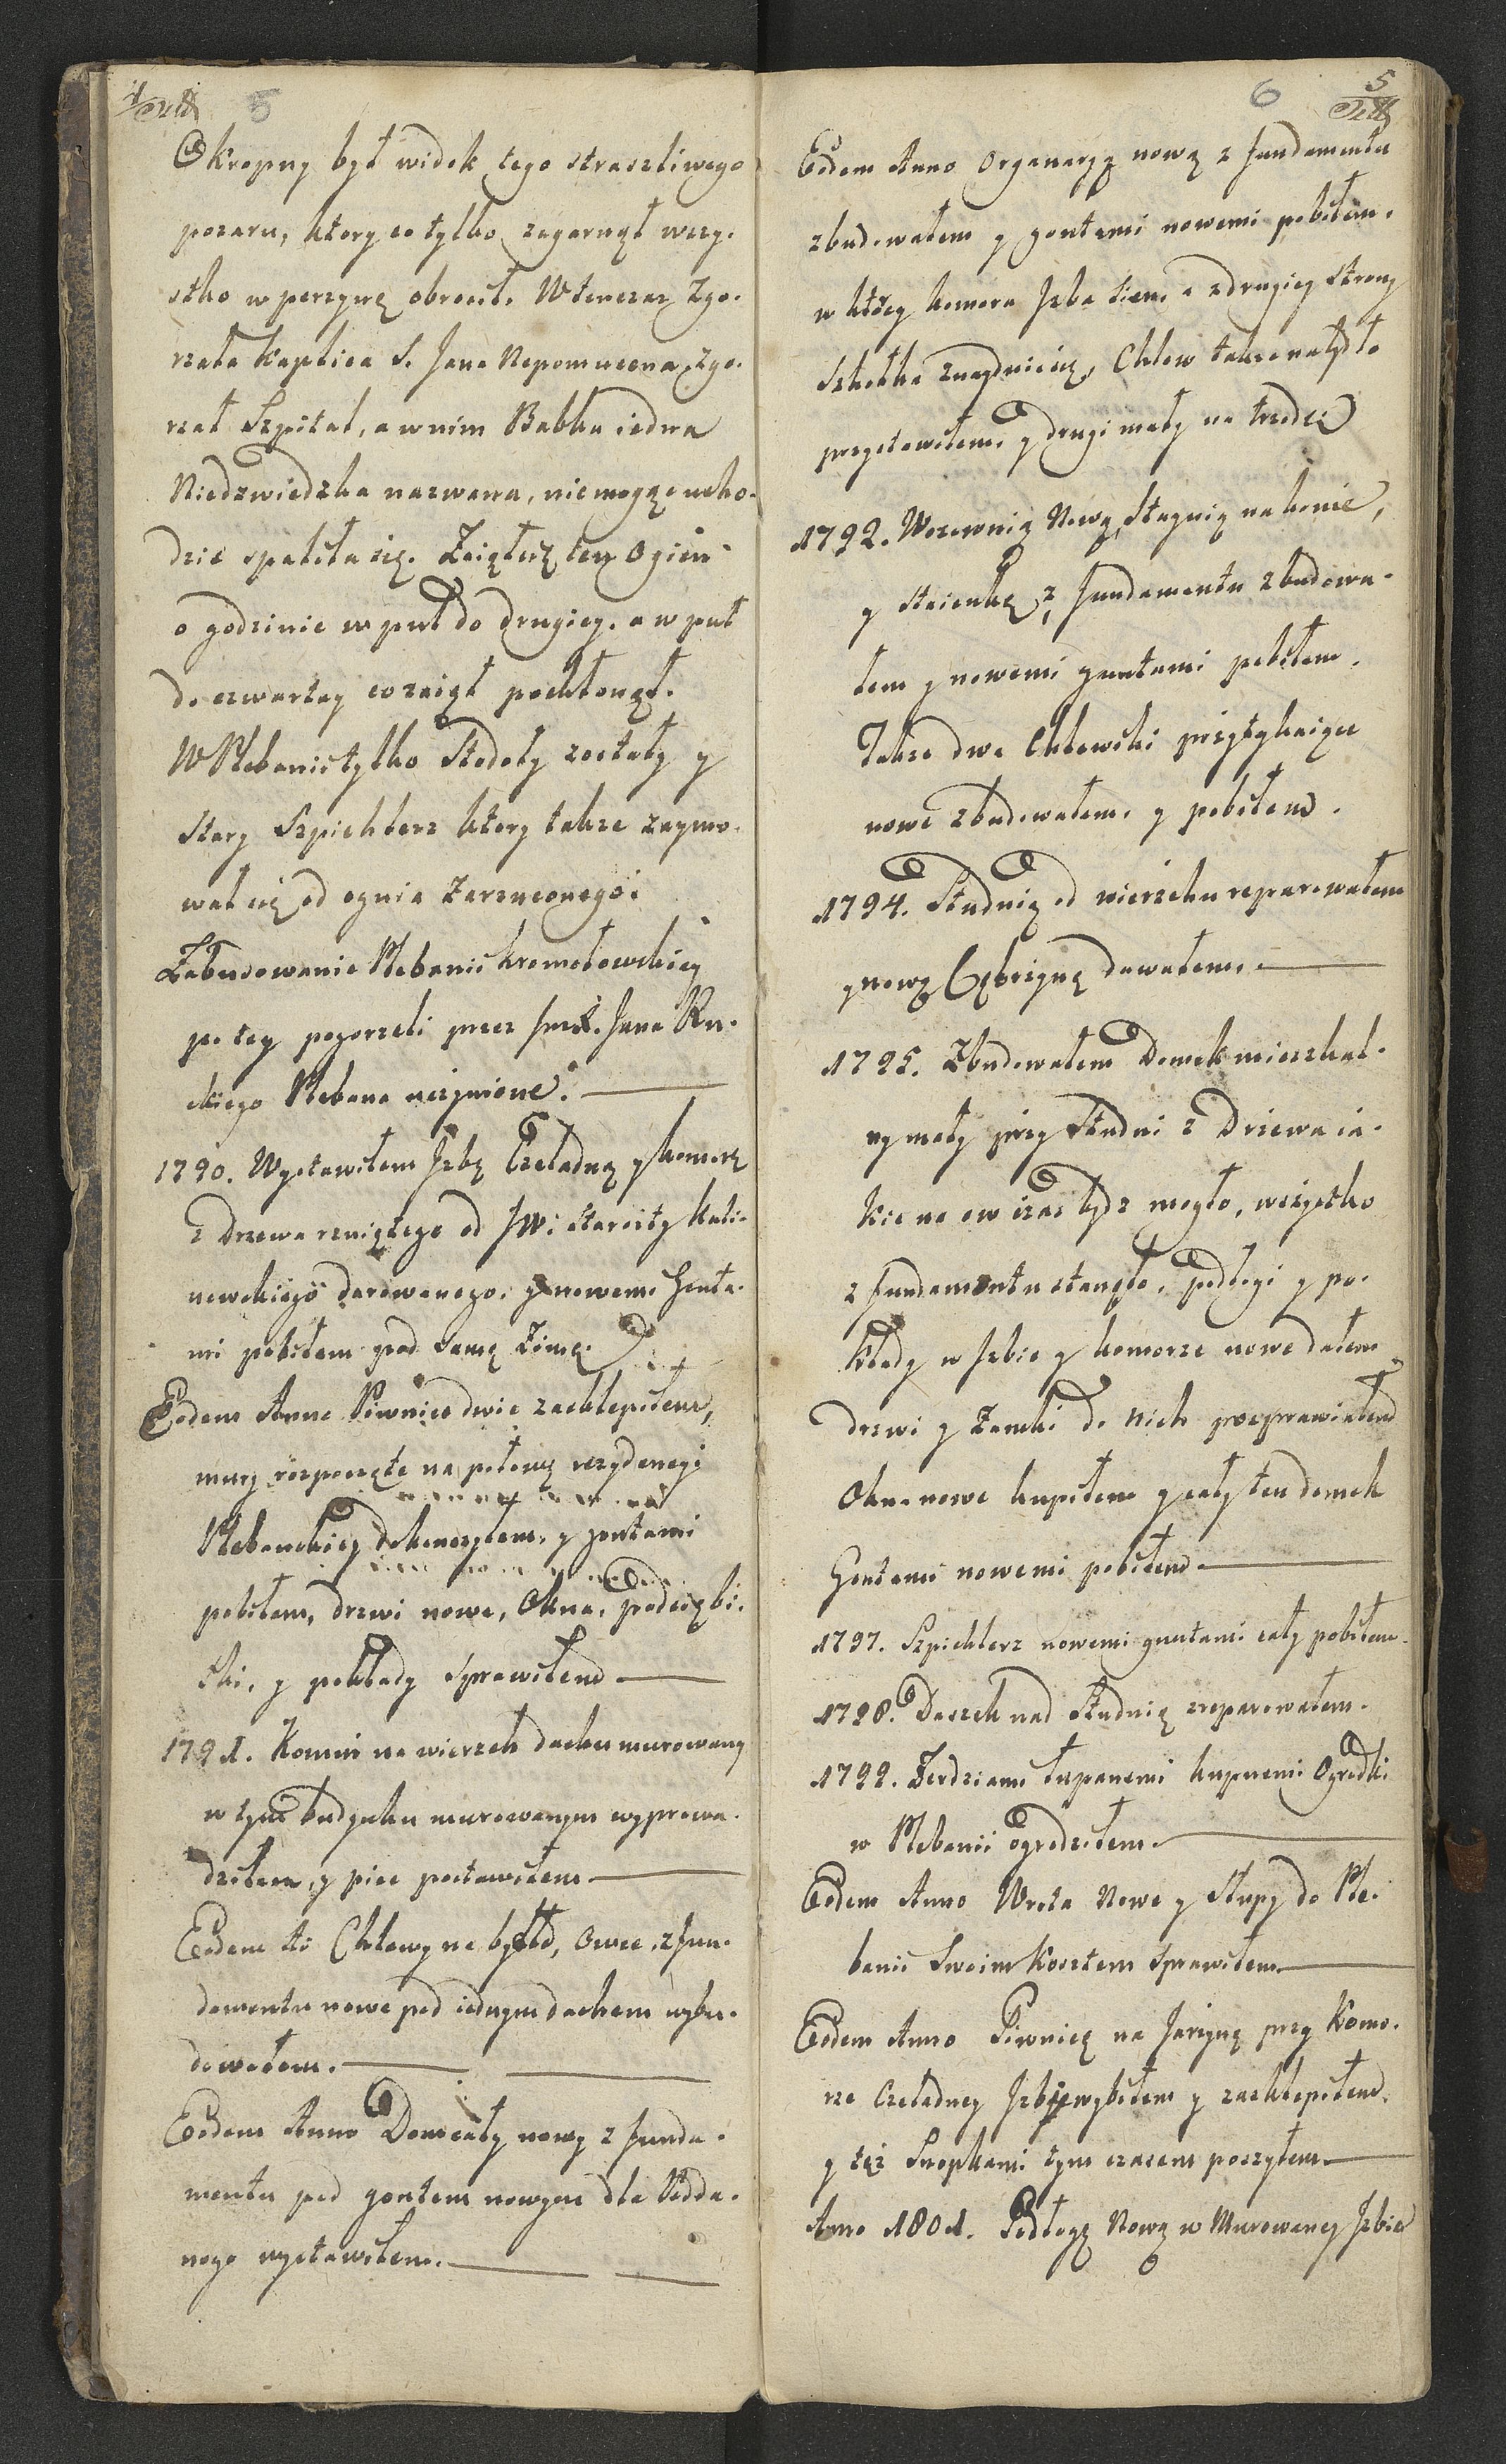 5
Okropny był widok tego straszliwego
pozaru, ktory co tylko zagarnął wszy-
stko w perzynę obrocił. Wtenczas Zgo-
rzała Kaplica S. Jana Nepomucena, Zgo-
rzał Szpital, a w nim Babka iedna
Niedzwiedzka nazwana, niemogąc ucho-
dzić spaliła się. Zaiął się ten Ogień
o godzinie w puł do drugiey, a w puł
do czwartey co zaiął pochłonął.
W Plebanii tylko Stodoły zostały y
Stary Szpichlerz ktory takze zaymo-
wał się od ognia Zarzuconego.
Zabudowanie Plebanii kromołowskiey
po tey pogorzeli przez Jana Ru-
skiego Plebana uczynione.
1790. Wystawiłem Jzbę Czeladną y komorę
z drzewa rzniętego od JW Starosty Kali-
nowskiego darowanego, y nowemi Gonta-
mi pobiłem pod Samę Zimę.
Eodem Anno Piwnice dwie zasklepiłem,
mury rozpoczęte na połowę rezydencyi
Plebanskiey dokonczyłem, y gontami
pobiłem, drzwi nowe, Okna, podsiębi-
tki, y pokłady Sprawiłem
1791. Komin na wierzch dachu murowany
w tym budynku murowanym wyprowa-
dziłem, y piec postawiłem
Eodem Ao Chlewy na bydło, Owce, z fun-
damentu nowe pod iednym dachem wybu-
dowałem.
Eodem Anno Dom cały nowy z funda-
mentu pod gontem nowym dla Podda-
nego wystawiłem.
6 5
Eodem Anno Organaryą nową z fundamentu
zbudowałem y gontami nowemi pobiłem,
w ktorey komora Jzba Sien, a z drugiey Strony
Szkołka znayduie się, Chlew takze na bydło
przystawiłem y drugi mały na trzodę
1792. Wozownią Nową, Staynią na konie,
y Staienkę z fundamentu zbudowa-
łem y nowemi gontami pobiłem.
Takze dwa Chlewiki przytykaiące
nowe zbudowałem, y pobiłem.
1794. Studnią od wierzchu reparowałem
y nową Cębrzynę dawałem.
1795. Zbudowałem Domek mieszkal-
ny mały przy Studni z Drzewa ia-
kie na ow czas bydz mogło, wszystko
z fundamentu stanęło, podłogi y po-
kłady w Jzbie y komorze nowe dałem
drzwi y Zamki do nich posprawiałem
Okna nowe kupiłem y cały ten domek
Gontami nowemi pobiłem
1797. Szpichlerz nowemi gontami cały pobiłem.
1798. Daszek nad Studnią zreparowałem.
1799. Zerdziami łupanemi kupnemi Ogrodki
w Plebanii ogrodziłem.
Eodem Anno Wrota Nowe y Słupy do Ple-
banii Swoim Kosztem Sprawiłem
Eodem Anno Piwnicę na Jarzynę przy Komo-
rze Czeladney Jzby wybiłem y zasklepiłem,
y też Snopkami tym czasem poszyłem
Anno 1801. Podłogę Nową w Murowaney Jzbie